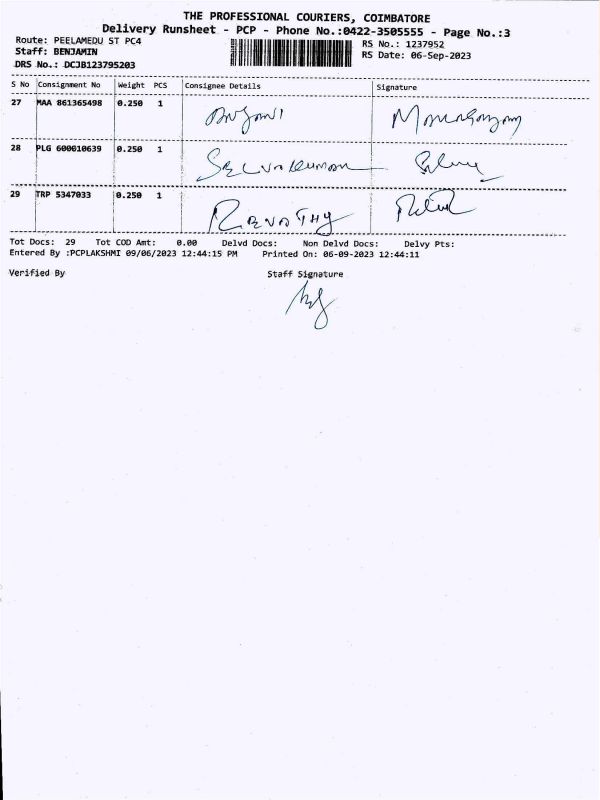 THE PROFESSIONAL COURIERS, COIMBATORE
Delivery Runsheet - PCP - Phone No.:0422-3505555 - Page No.:3
Route: PEELAMEDU ST PC4 RS No.: 1237952
Staff: BENJAMIN RS Date: 06-Sep-2023
DRS No.: DCJB123795203
S No Consignment No Weight PCS Consignee Details Signature
27 MAA 861365498 0.250 1
28 PLG 600010639 0.250 1 SELVAKUMAR
29 TRP 5347033 0.250 1 REVATHY
Tot Docs: 29 Tot COD Amt: 0.00 Delvd Docs: Non Delvd Docs: Delvy Pts:
Entered By :PCPLAKSHMI 09/06/2023 12:44:15 PM Printed On: 06-09-2023 12:44:11
Verified By Staff Signature